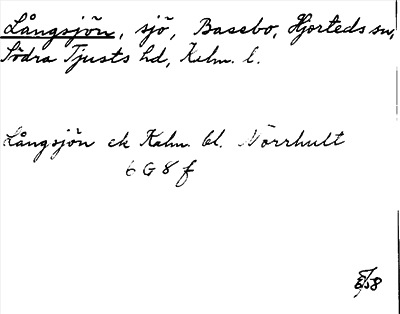 Långsjön, sjö, Bassebo, Hjorteds sn,
Södra Tjusts hd, Kalm. l.
Långsjön ek Kalm. bl. Norrhult
6 G 8 f